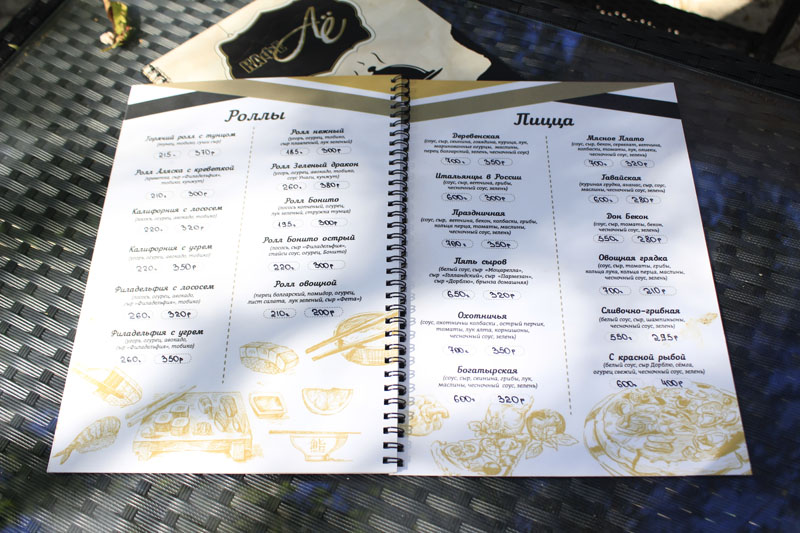 кафе Аё
Роллы
Горячий ролл с тунцом
215г 370р
Ролл Аляска с креветкой
210г 300р
Калифорния с лососем
(лосось, огурец, авокадо, тобико)
220г 320р
Калифорния с угрем
(угорь, огурец, авокадо, тобико)
220г 350р
Филадельфия с лососем
(лосось, огурец, авокадо,
сыр «Филадельфия», тобико)
260г 320р
Филадельфия с угрем
(угорь, огурец, авокадо,
сыр «Филадельфия», тобико)
260г 350р
Ролл нежный
(угорь, огурец, тобико,
сыр плавленый, лук зеленый)
185г 300р
Ролл Зеленый дракон
(угорь, огурец, авокадо, тобико,
соус Унаги, кунжут)
260г 380р
Ролл Бонито
(лосось копченый, огурец,
лук зеленый, стружка тунца)
195г 300р
Ролл Бонито острый
(лосось, сыр «Филадельфия»,
спайси соус, огурец, Бонито)
220г 300р
Ролл овощной
(перец болгарский, помидор, огурец,
лист салата, лук зеленый, сыр «Фета»)
210г 200р
Пицца
Деревенская
(соус, сыр, свинина, говядина, курица, лук,
маринованные огурцы, маслины,
перец болгарский, зелень, чесночный соус)
700г 350р
Итальянцы в России
(соус, сыр, ветчина, грибы,
чесночный соус, зелень)
600г 300р
Праздничная
(соус, сыр, ветчина, бекон, колбасти, грибы,
кольца перца, томаты, маслины,
чесночный соус, зелень)
700г 350р
Пять сыров
(белый соус, сыр «Моцарелла»,
сыр «Голландский», сыр «Пармезан»,
сыр «Дорблю», брынза домашняя)
650г 320р
Охотничья
(соус, охотничьи колбаски , острый перчик,
томаты, лук ялта, корнишоны,
чесночный соус, зелень)
700г 350р
Богатырская
(соус, сыр, свинина, грибы, лук,
маслины, чесночный соус, зелень)
600г 320р
Мясное Плато
(соус, сыр, бекон, сервелат, ветчина,
колбаски, томаты, лук, оливки,
чесночный соус, зелень)
700г 320р
Гавайская
(куриная грудка, ананас, сыр, соус,
маслины, чесночный соус, зелень)
600г 280р
Дон Бекон
(соус, сыр, бекон, томаты,
чесночный соус, зелень)
550г 280р
Овощная грядка
(соус, сыр, томаты, грибы,
кольца лука, кольца перца, маслины,
чесночный соус, зелень)
700г 210р
Сливочно-грибная
(белый соус, сыр, шампиньоны,
чесночный соус, зелень)
550г 295р
С красной рыбой
(белый соус, сыр Дорблю, сёмга,
огурец свежий, чесночный соус, зелень)
600г 400р